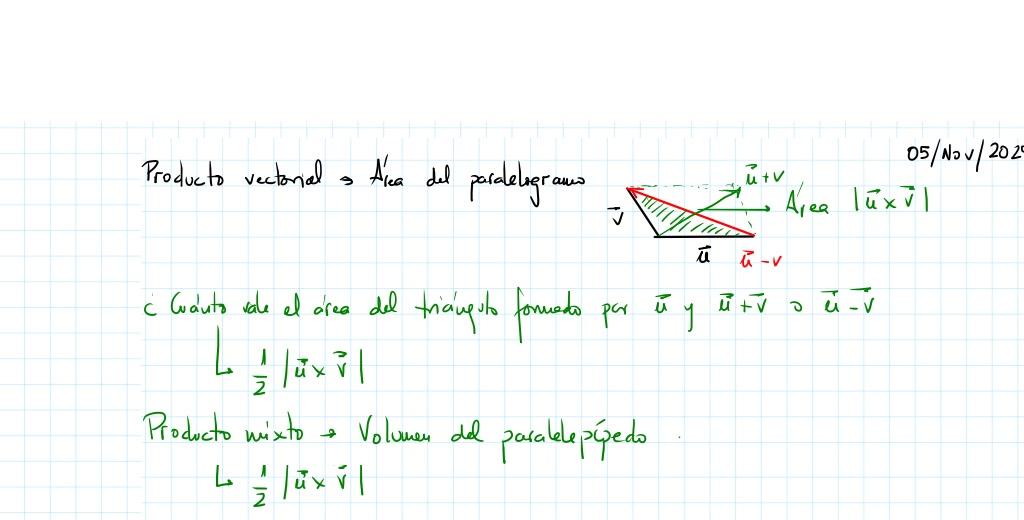 05/Nov/202
Producto vectorial → Área del paralelogramo
u⃗+v
Área |u⃗ x v⃗|
v⃗
u⃗
u⃗-v
¿ Cuánto vale el área del triángulo formado por u⃗ y u⃗+v⃗ o u⃗-v⃗
↳ 1/2 |u⃗ x v⃗|
Producto mixto → Volumen del paralelepípedo
↳ 1/2 |u⃗ x v⃗|